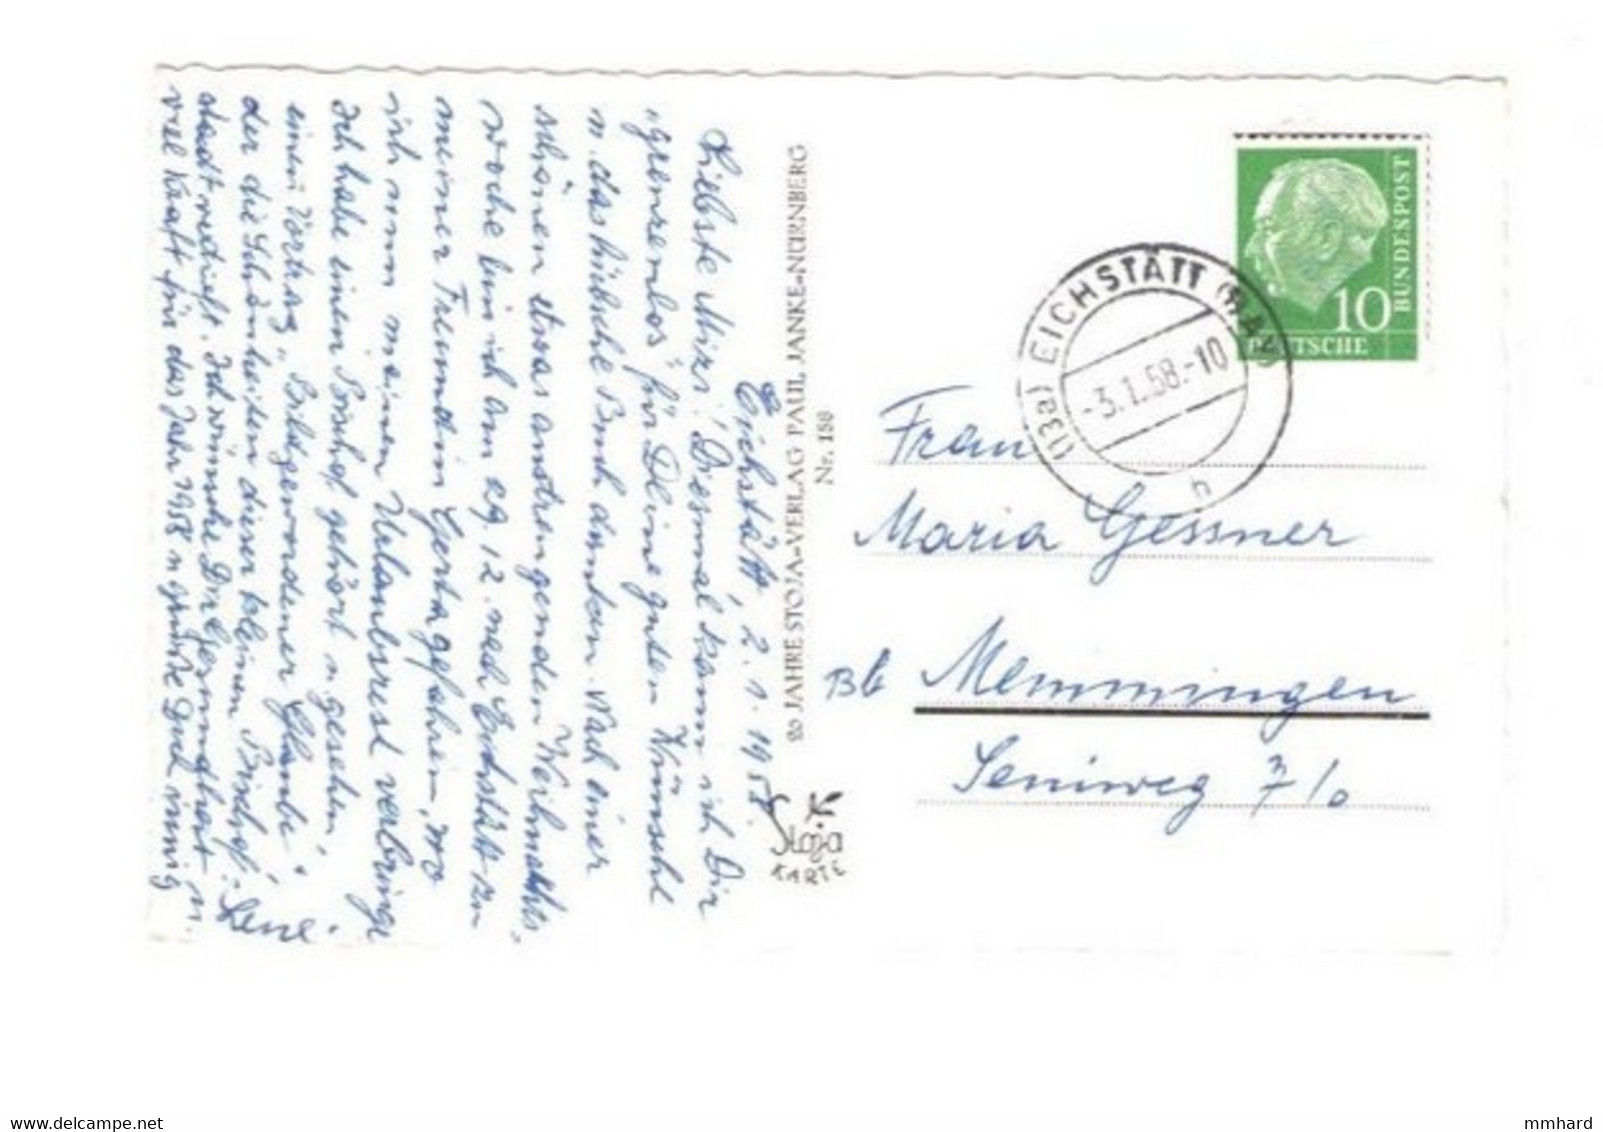 Eichstätt, 2.1.1958.
Liebste Mizi! Diesmal kann ich Dir
„grenzenlos" für Deine guten Wünsche
u. das hübsche Buch danken. Nach einer
schönen etwas anstrengenden Weihnachts-
woche bin ich am 29.12. nach Eichstätt zu
meiner Freundin Gerta gefahren, wo
ich nun meinen Urlaubsrest verbringe
Ich habe einen Bischof gehört u. gesehen,
einen Vortrag „Bildgewordener Glaube",
der die Schönheiten dieser kleinen Bischof-
stadt
Ich wünsche Dir
viel Kraft für das Jahr 1958 u. grüße Dich innig
20 JAHRE STOJA-VERLAG PAUL JANKE-NÜRNBERG
Nr. 188
Stoja
KARTE
(13a) EICHSTÄTT (BAY)
-3.1.58.-10
h
10
DEUTSCHE
BUNDESPOST
Frau
Maria Gessner
Memmingen
Seniweg
Delcampe.net
mmhard